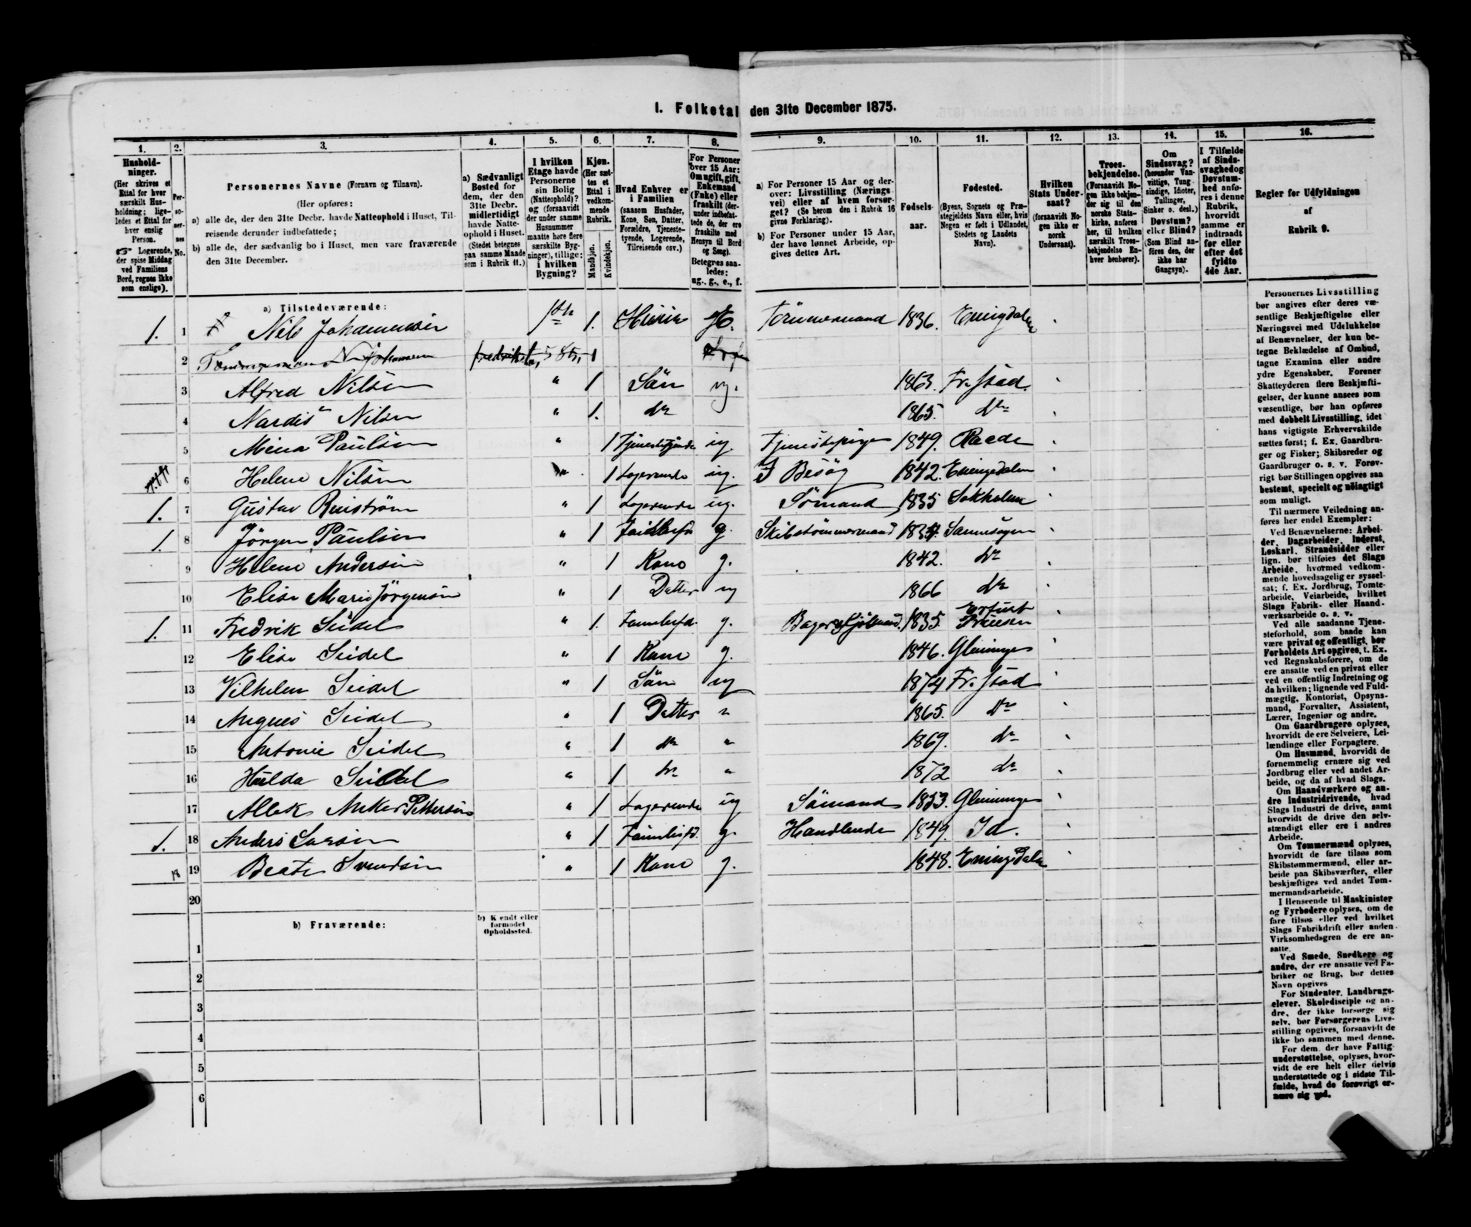 I. Folketal den 31te December 1875.
1. 2. 3. 4. 5. 6. 7. 8. 9. 10. 11. 12. 13. 14. 15. 16.
Hushold-
ninger.
(Her skrives et
Ettal for hver
særskilt Hus-
holdning; lige-
ledes et Ettal for
hver enslig
Person.
Logerende,
der spise Middag
ved Familiens
Bord, regnes ikke
som enslige).
Per-
so-
ner-
nes
No.
Personernes Navne (Fornavn og Tilnavn).
(Her opføres:
a) alle de, der den 31te Decbr. havde Natteophold i Huset, Til-
reisende derunder indbefattede;
b) alle de, der sædvanlig bo i Huset, men vare fraværende
den 31te December.
a) Sædvanligt
Bosted for
dem, der den
31te Decbr.
midlertidigt
havde Natte-
ophold i Huset.
(Stedet betegnes
paa samme Maade
som i Rubrik 11.)
I hvilken
Etage havde
Personerne
sin Bolig
(Natteophold)?
og (forsaavidt
under samme
Husnummer
maatte høre flere
særskilte Byg-
ninger), tillige:
i hvilken
Bygning?
Kjøn.
(Her sæt-
tes et
Ettal i
vedkom-
mende
Rubrik.
Mandkjøn.
Kvindekjøn.
Hvad Enhver er
i Familien
(saasom Husfader,
Kone, Søn, Datter,
Forældre, Tjeneste-
tyende, Logerende,
Tilreisende osv.)
For Personer
over 15 Aar:
Om ugift, gift,
Enkemand
(Enke) eller
fraskilt (der-
under indbefat-
tede de, der ere
fraskilte med
Hensyn til Bord
og Seng).
Betegnes saa-
ledes:
ug., g., e., f.
a) For Personer 15 Aar og der-
over: Livsstilling (Nærings-
vei) eller af hvem forsør-
get? (Se herom den i Rubrik 16
givne Forklaring).
b) For Personer under 15 Aar,
der have lønnet Arbeide, op-
gives dettes Art.
Fødsels-
aar.
Fødested.
(Byens, Sognets og Præ-
stegjeldets Navn eller, hvis
Nogen er født i Udlandet,
Stedets og Landets
Navn).
Hvilken
Stats Under-
saat?
(forsaavidt No-
gen ikke er
norsk
Undersaat).
Troes-
bekjendelse.
(Forsaavidt No-
gen ikke bekjen-
der sig til den
norske Stats-
kirke, anføres
her, til hvilken
særskilt Troes-
bekjendelse En-
hver henhører).
Om
Sindssvag?
(herunder Van-
vittige, Tung-
sindige, Idioter,
Tullinger,
Sinker o. desl.)
Døvstum?
eller Blind?
(Som Blind an-
føres den, der
ikke har
Gangsyn).
I Tilfælde
af Sinds-
svaghed og
Døvstum-
hed anfø-
res i denne
Rubrik,
hvorvidt
samme er
indtraadt
før eller
efter det
fyldte
4de Aar.
Regler for Udfyldningen
af
Rubrik 9.
a) Tilstedeværende:
1. 1 Nils Johannesen 1. 1836. Emingdalen
2 1
3 Alfred Nilsen „ 1 Sön ug. 1863. Fr. stad
4 Nardis Nilsen „ 1. do 1865. do
5 Mina Paulsen „ 1 ug 1849. Raade
6 Helene Nilsen 1 Logerende ug. I Besøg 1842. Emingdalen
1. 7 Gustav „ 1 Logerende ug. Sømand 1835
1. 8 Jörgen Paulsen „ 1 g. Skibstømmermand
9 Helene Andersen „ 1 Kone g. 1842. do
10 Elise Marie Jörgensen „ 1 Datter ug 1866 do
1. 11 Fredrik Seidel „ 1. g. 1835.
12 Elise Seidel „ 1 Kone g. 1846. Glemminge
13 Vilhelm Seidel „ 1 Sön ug 1874 Fr. stad
14 Seidel „ 1 Datter „ 1865. do
15 Antonie Seidel „ 1 do „ 1869. do
16 Hulda Seidel „ 1 do „ 1872 do
17 Anker Pettersen „ 1 Logerende ug Sömand 1853. Glemminge
1. 18 Anders „ 1 g. Handlende 1849. Id.
19 Beate Svendsen „ 1 Kone g. 1848. Emingdalen
20
b) Fraværende:
b) Kjendt eller
formodet
Opholdssted.
1
2
3
4
5
6
Personernes Livsstilling
bør angives efter deres væ-
sentlige Beskjæftigelse eller
Næringsvei med Udelukkelse
af Benævnelser, der kun be-
tegne Beklædelse af Ombud,
tagne Examina eller andre
ydre Egenskaber. Forener
Skatteyderen flere Beskjæfti-
gelser, der kunne ansees som
væsentlige, bør han opføres
med dobbelt Livsstilling, idet
hans vigtigste Erhvervskilde
sættes først; f. Ex. Gaardbru-
ger og Fisker; Skibsreder og
Gaardbruger o. s. v. Forøv-
rigt bør Stillingen opgives saa
bestemt, specielt og nøiagtigt
som muligt.
Til nærmere Veiledning an-
føres her endel Exempler:
Ved Benævnelserne: Arbei-
der, Dagarbeider, Inderst,
Løskarl, Strandsidder eller
lign. bør tilføies det Slags
Arbeide, hvormed vedkom-
mende hovedsagelig er syssel-
sat; f. Ex. Jordbrug, Tomte-
arbeide, Veiarbeide, hvilket
Slags Fabrik- eller Haand-
værksarbeide o. s. v.
Ved alle saadanne Tjene-
steforhold, som baade kan
være privat og offentligt, bør
Forholdets Art opgives, f. Ex.
ved Regnskabsførere, om de
ere ansatte ved en privat eller
ved en offentlig Indretning og
da hvilken; lignende ved Fuld-
mægtig, Kontorist, Opsyns-
mand, Forvalter, Assistent,
Lærer, Ingeniør og andre.
Om Gaardbrugere oplyses,
hvorvidt de ere Selveiere, Lei-
lændinge eller Forpagtere.
Om Husmænd, hvorvidt de
fornemmelig ernære sig ved
Jordbrug eller ved andet Ar-
beide, og da af hvad Slags.
Om Haandværkere og an-
dre Industridrivende, hvad
Slags Industri de drive, samt
hvorvidt de drive den selv-
stændigt eller ere i andres
Arbeide.
Om Tømmermænd oplyses,
hvorvidt de fare tilsøs som
Skibstømmermænd, eller ar-
beide paa Skibsværfter, eller
beskjæftiges ved andet Tøm-
mermandsarbeide.
I Henseende til Maskinister
og Fyrbødere oplyses, om de
fare tilsøs eller ved hvilket
Slags Fabrikdrift eller anden
Virksomhedsgren de ere an-
satte.
Ved Smede, Snedkere og
andre, der ere ansatte ved Fa-
briker og Brug, bør dettes
Navn opgives
For Studenter, Landbrugs-
elever, Skoledisciple og an-
dre, der ikke forsørge sig
selv, bør Forsørgerens Livs-
stilling opgives, forsaavidt de
ikke bo sammen med denne.
For dem, der have Fattig-
understøttelse, oplyses, hvor-
vidt de ere helt eller delvis
understøttede og i sidste Til-
fælde, hvad de forøvrigt er-
nære sig ved.